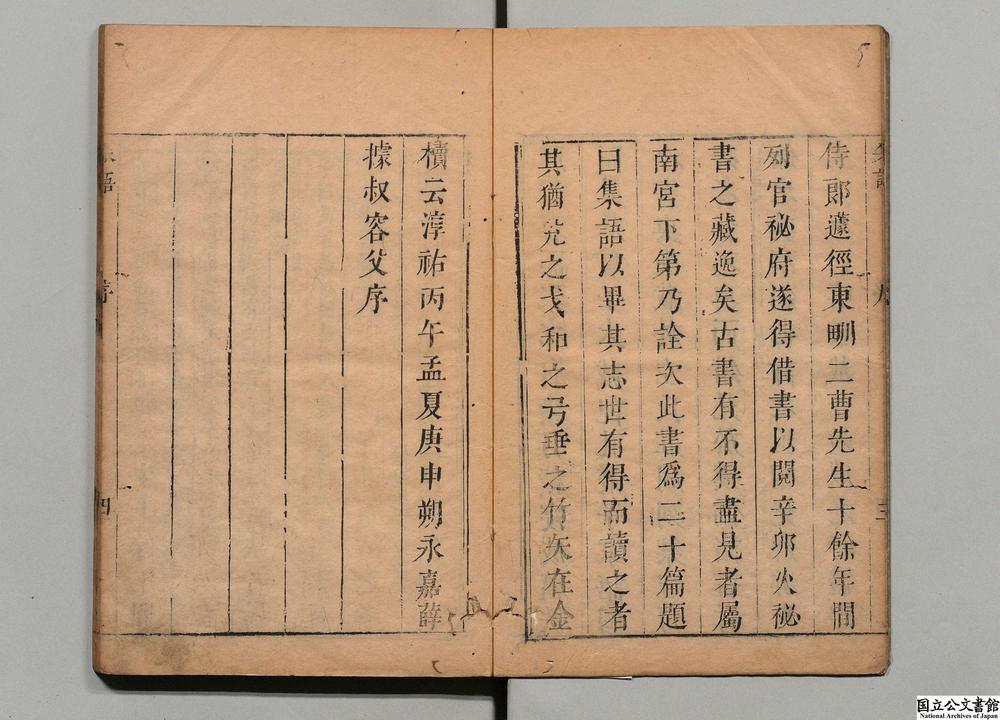 侍郎蘧徑東甽二曹先生十餘年間
列官祕府遂得借書以閱辛卯火祕
書之藏逸矣古書有不得盡見者屬
南宮下第乃詮次此書爲二十篇題
曰集語以畢其志世有得而讀之者
其猶兊之戈和之弓垂之竹矢在金
櫝云淳祐丙午孟夏庚申朔永嘉薛
據叔容父序
語
序
四
国立公文書館
National Archives of Japan